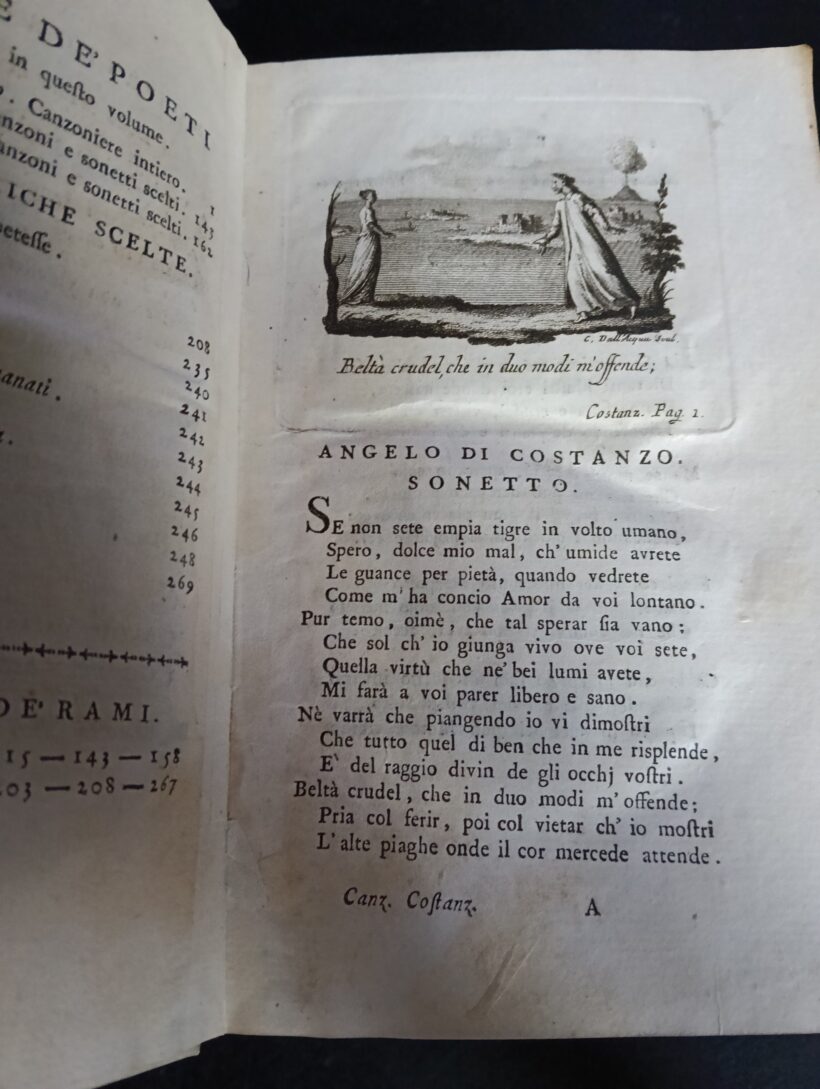 E DE' POETI
in queſto volume.
. Canzoniere intiero. 1
nzoni e sonetti scelti. 143
anzoni e sonetti scelti. 162
ICHE SCELTE.
eteſſe.
208
235
anati. 240
241
242
243
244
245
246
248
269
DE' RAMI.
15 — 143 — 158
203 — 208 — 267
C. Dall'Acqua Scul.
Beltà crudel, che in duo modi m'offende;
Costanz. Pag. 1.
ANGELO DI COSTANZO.
SONETTO.
SE non sete empia tigre in volto umano,
Spero, dolce mio mal, ch' umide avrete
Le guance per pietà, quando vedrete
Come m' ha concio Amor da voi lontano.
Pur temo, oimè, che tal sperar ſia vano;
Che sol ch' io giunga vivo ove voi sete,
Quella virtù che ne' bei lumi avete,
Mi farà a voi parer libero e sano.
Nè varrà che piangendo io vi dimoſtri
Che tutto quel di ben che in me risplende,
E' del raggio divin de gli occhj voſtri.
Beltà crudel, che in duo modi m' offende;
Pria col ferir, poi col vietar ch' io moſtri
L' alte piaghe onde il cor mercede attende.
Canz. Coſtanz. A